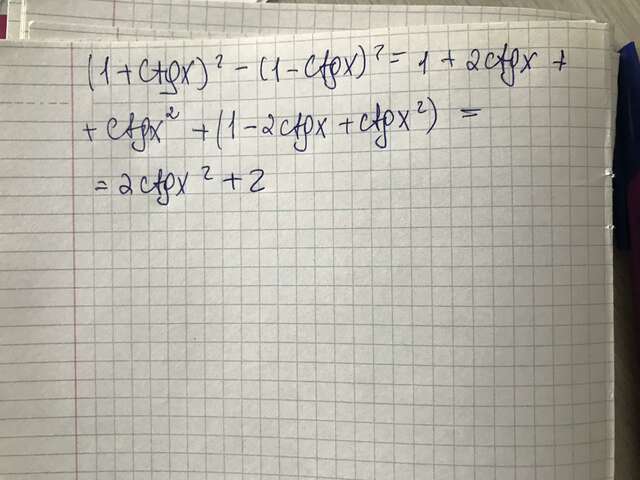 (1+ctgx)² - (1-ctgx)² = 1 + 2ctgx +
+ ctgx² + (1-2ctgx + ctgx²) =
= 2ctgx² + 2